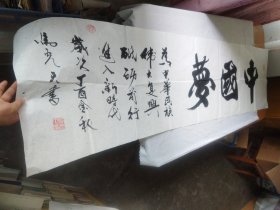 中國夢
為中華民族
偉大复興
砥砺前行
進入新時代
歲次丁酉金秋